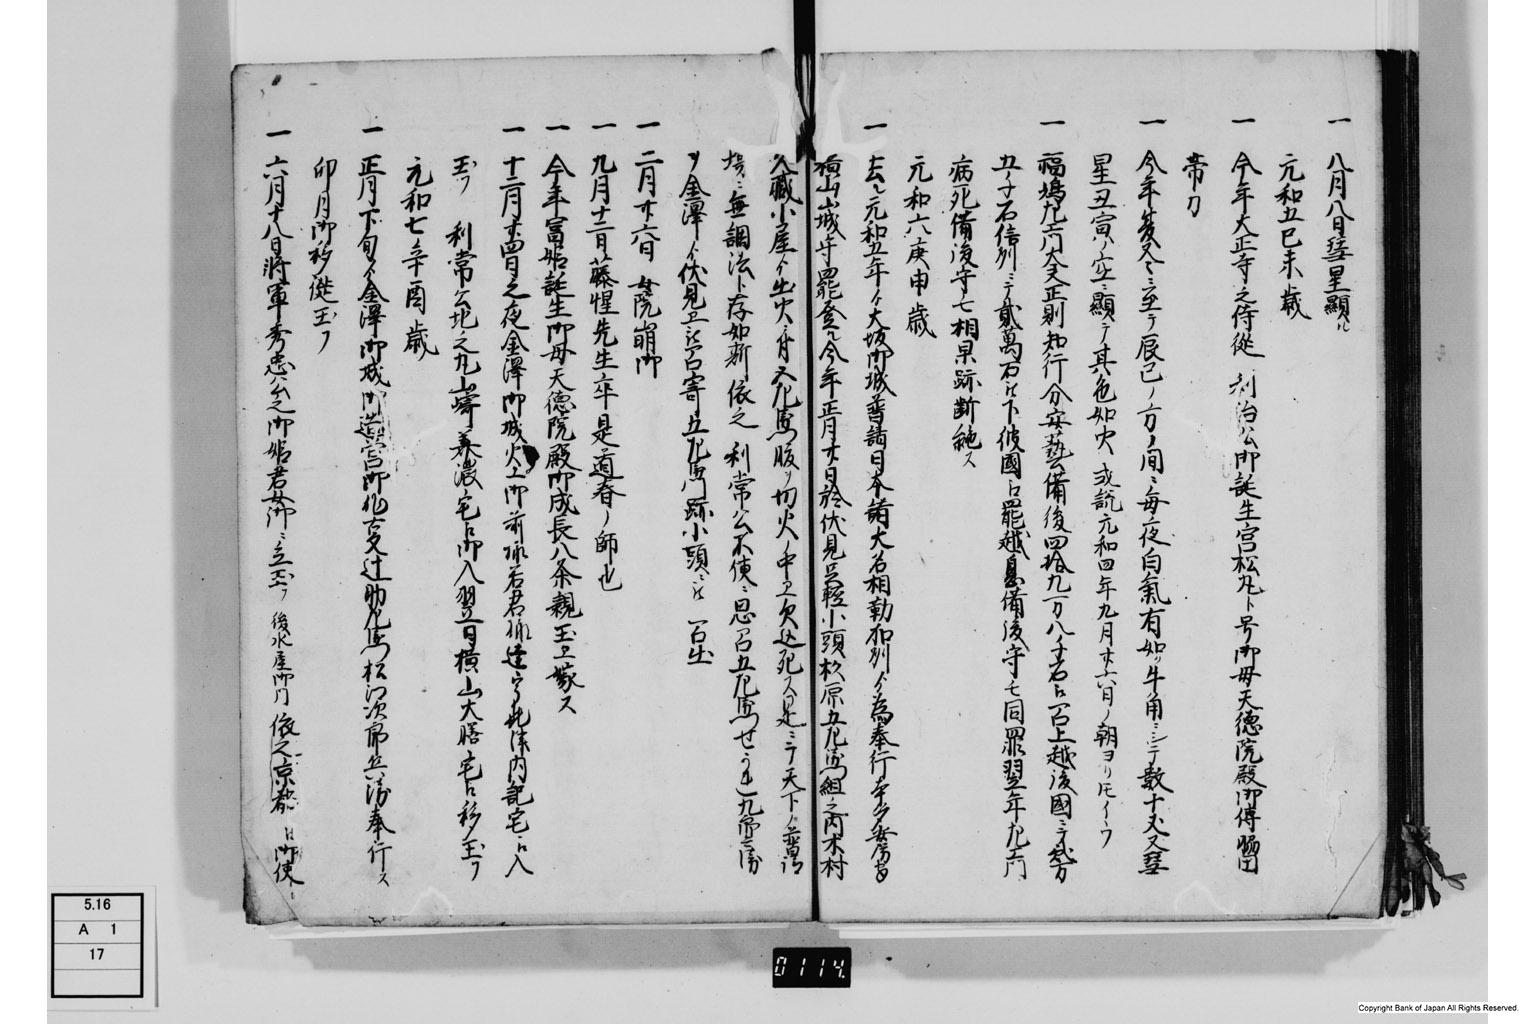 一 八月八日彗星顕ル
元和五己未歳
一 今年大正寺之侍従 利治公御誕生宮松丸ト号御母天徳院殿御傅脇田
帯刀
一 今年發久ニ至テ辰巳ノ方ノ間ニ毎夜白氣有如牛角ニシテ数十丈又彗
星丑寅ノ空ニ顕テ其色如火 或説元和四年九月廿六日ノ朝ヨリトモイフ
一 福嶋左衛門大夫正則知行分安藝備後四拾九万八千石被召上越後國ニテ弐万
五千石信列ニテ貳萬石被下彼國江罷越息備後守モ同罪翌年左衛門
病死備後守モ相果跡断絶ス
元和六庚申歳
一 去ル元和五年ゟ大坂御城普請日本諸大名相勤加列ゟ為奉行本多安房守
横山山城守罷登ル今年正月廿日於伏見足軽小頭杉原五左衛門組之内木村
久蔵小屋ゟ出火ニ付五左衛門腹ヲ切火ノ中江欠込死ス是ニテ天下ノ普請
場ニ無調法ト存如斯依之 利常公不便ニ思召五左衛門せかれ九郎兵衛
ヲ金澤ゟ伏見江被召寄五左衛門跡小頭ニ被 召出
一 二月廿六日 女院崩御
一 九月十二日藤惺先生卒是道春ノ師也
一 今年富姫誕生御母天徳院殿御成長八条親王江嫁ス
一 十二月廿四日之夜金澤御城火上御前様若君様達
内記宅江入
玉フ 利常公北之丸山崎美濃宅江御入翌日横山大膳宅江移玉フ
元和七辛酉歳
一 正月下旬ゟ金澤御城御造営御作
辻助左衛門松江次郎兵衛奉行ス
卯月御移徙玉フ
一 六月十八日将軍秀忠公之御姫君女御ニ立玉フ 後水尾御門 依之京都江御使ニ
5.16
A 1
17
0114.
Copyright Bank of Japan All Rights Reserved.